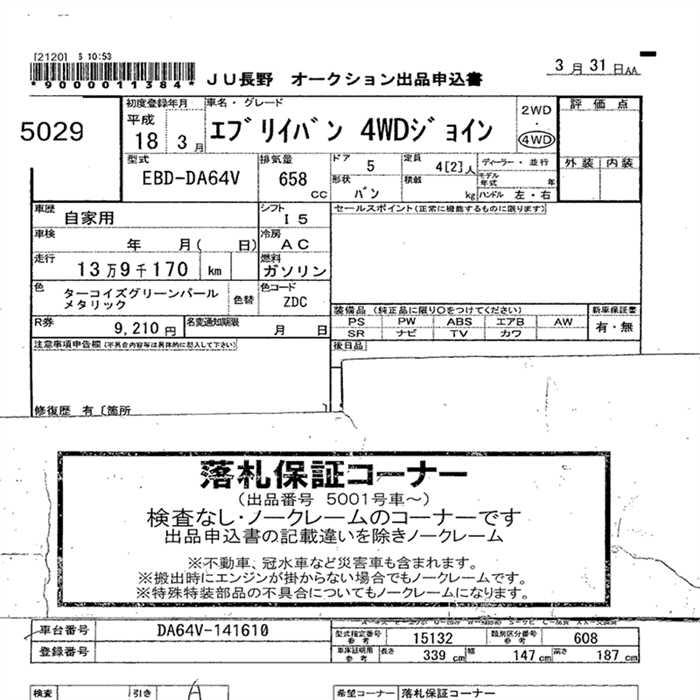 [2120] S 10:53
*9000011384*
JU長野 オークション出品申込書
3月31日AA
5029
初度登録年月
平成
18 3月
車名・グレード
エブリイバン 4WDジョイン
2WD
・
4WD
評価点
外装 内装
型式
EBD-DA64V
排気量
658
CC
ドア 5
定員 4[2]人
ディーラー・並行
形状 バン
積載 kg
モデル年式 年
ハンドル 左・右
車歴 自家用
シフト I5
セールスポイント(正常に機能するものに限ります)
車検 年 月( 日)
冷房 AC
走行 13万9千170 km
燃料 ガソリン
色 ターコイズグリーンパール
メタリック
色替
色コード ZDC
装備品 (純正品に限り○をつけてください)
新車保証書
PS PW ABS エアB AW
SR ナビ TV カワ
有・無
R券 9,210円
名変通知期限 月 日
注意事項申告欄(不具合内容等は具体的に記入して下さい)
後日品
修復歴 有〔箇所
落札保証コーナー
(出品番号 5001号車〜)
検査なし・ノークレームのコーナーです
出品申込書の記載違いを除きノークレーム
※不動車、冠水車など災害車も含まれます。
※搬出時にエンジンが掛からない場合でもノークレームです。
※特殊特装部品の不具合についてもノークレームになります。
車台番号 DA64V-141610
型式指定番号 参考 15132
類別区分番号 参考 608
登録番号
車体証明用 参考 長さ 339cm 幅 147cm 高さ 187cm
検査
引き
A
希望コーナー 落札保証コーナー